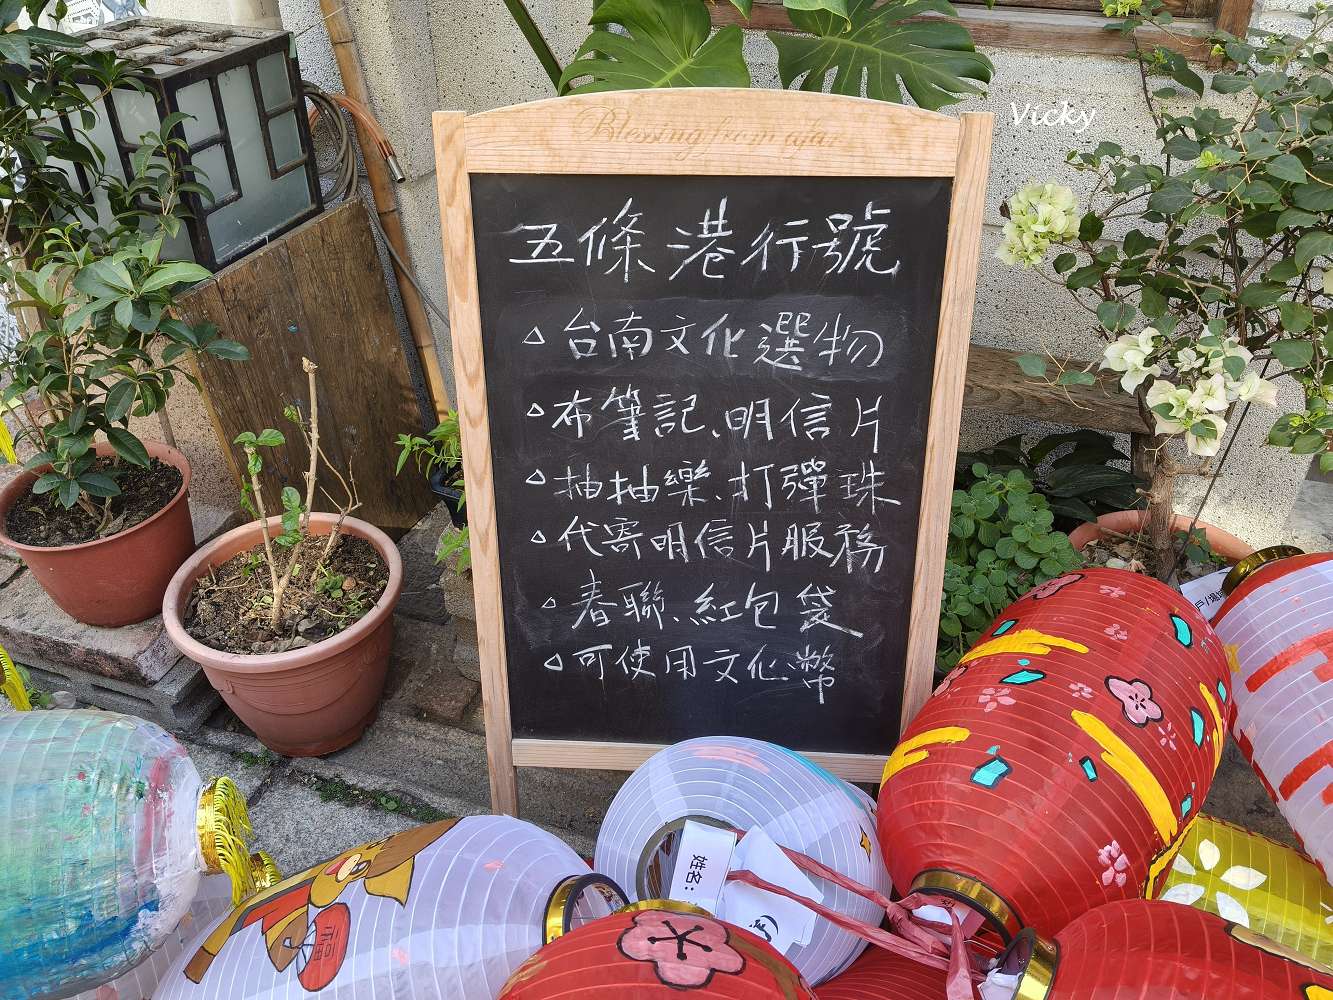 Vicky
Blessing from afar
五條港行號
△台南文化選物
△布筆記、明信片
△抽抽樂、打彈珠
△代寄明信片服務
△春聯、紅包袋
△可使用文化幣
姓名:
福